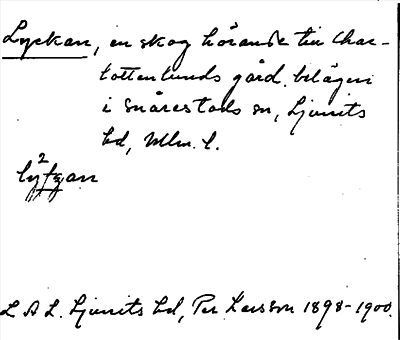 Lyckan, en skog hörande till Char-
lottenlunds gård, belägen
i Snårestads sn, Ljunits
hd, Mlm. l.
2
L A L. Ljunits hd, Per Larsson 1898-1900.